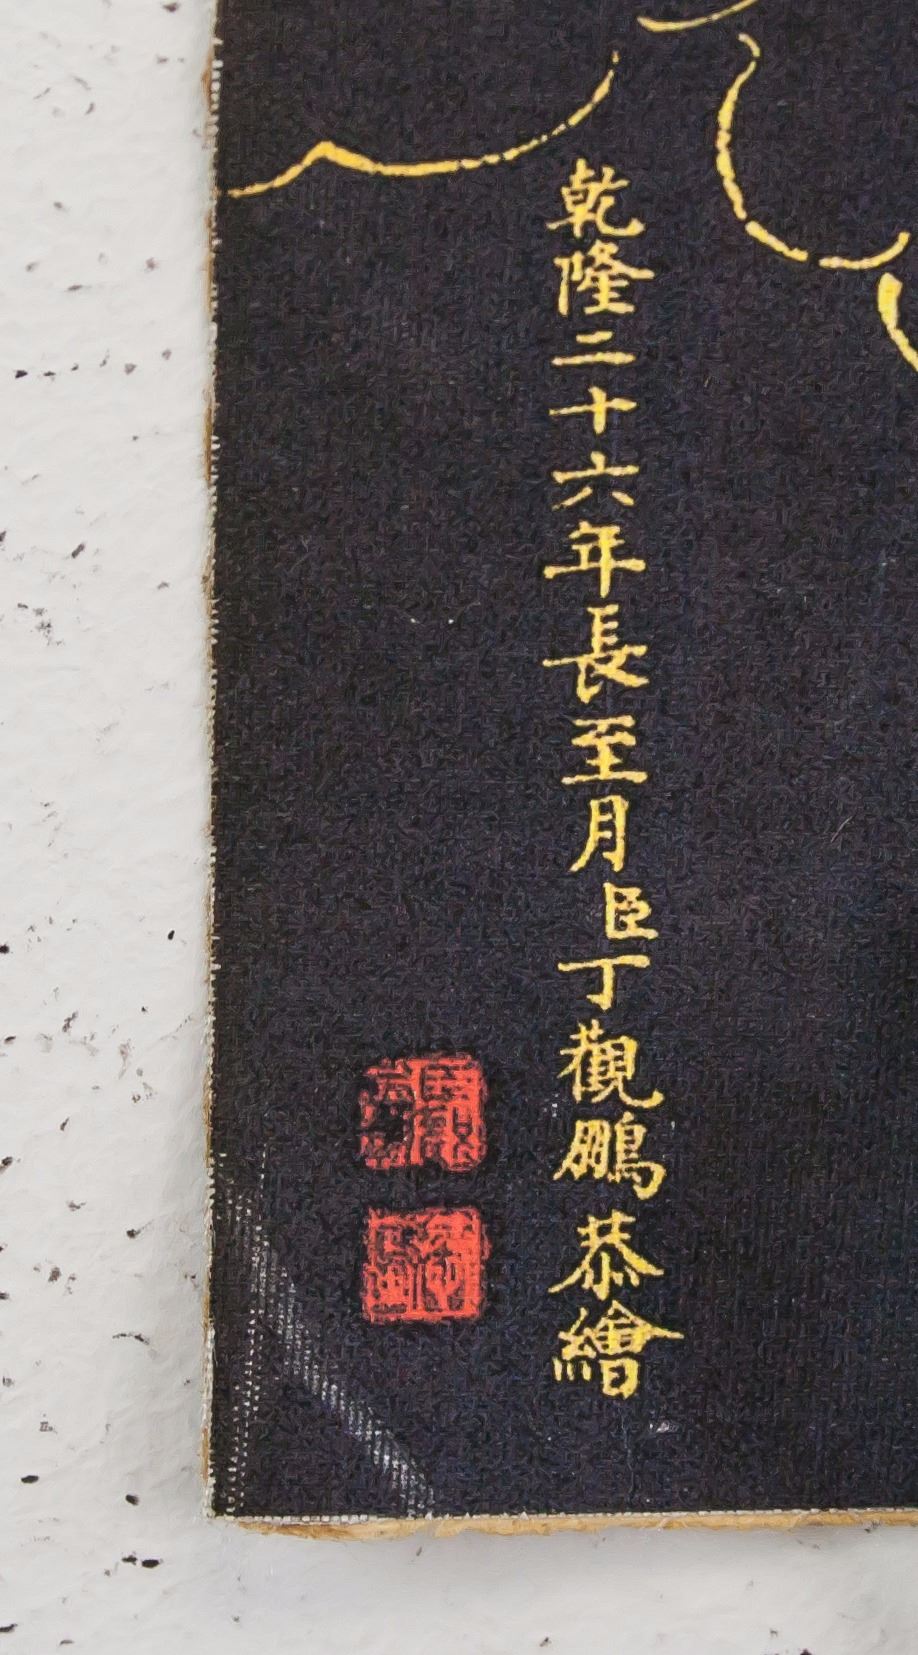 乾隆二十六年長至月臣丁觀鵬恭繪